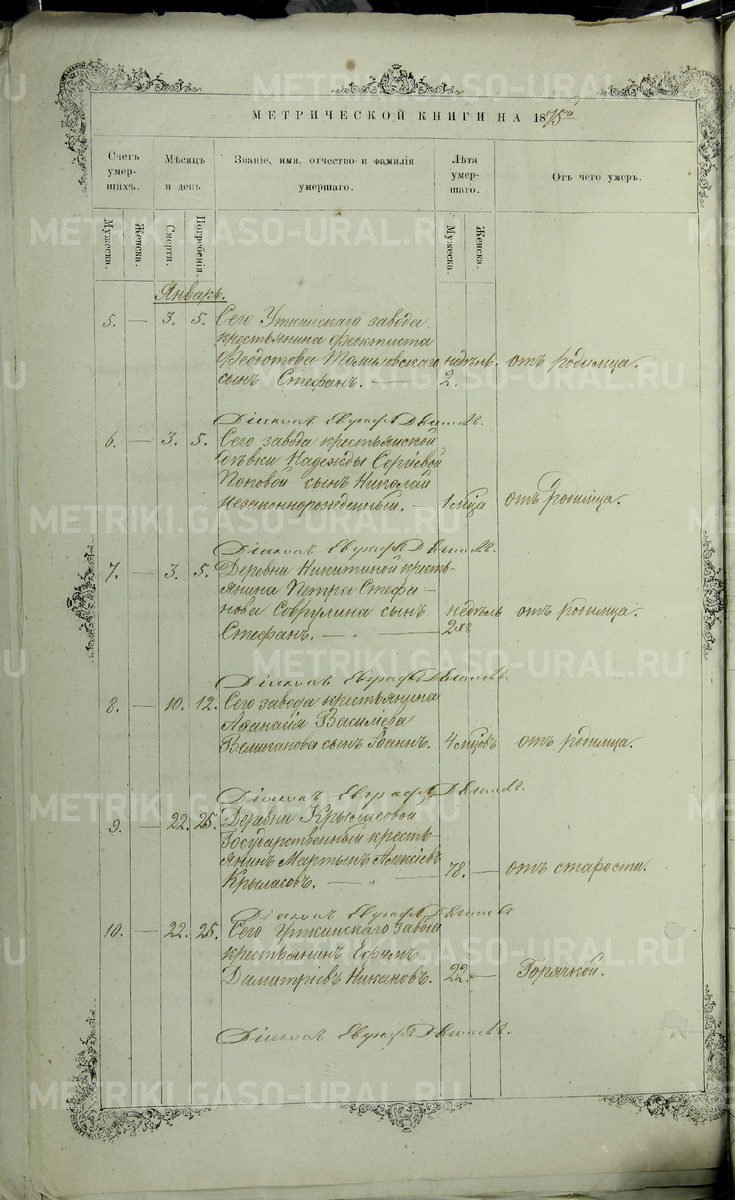 МЕТРИЧЕСКОЙ КНИГИ НА 1875й
Счетъ умерших. Мѣсяцъ и день Званіе, имя, отчество и фамилія умершаго. Лѣта умершаго. Отъ чего умеръ.
Мужеска. Женска. Смерти. Погребенія. Мужеска. Женска.
Январь.
5. — 3. 5. Сего Уткинскаго завода
крестьянина Феоктиста
Федотова Томиловскаго недѣль. отъ родимца.
сынъ Стефанъ. — 2.
Діаконъ Евграфъ
6. — 3. 5. Сего завода крестьянской
дѣвки Надежды Сергіевой
Поповой сынъ Николай
Незаконнорожденный. — 1 мѣца отъ родимца.
Діаконъ Евграфъ
7. — 3. 5. Деревни Никитиной кресть-
янина Петра Стефа-
нова Соврулина сынъ недѣль отъ родимца.
Стефанъ. — „ — 2хъ
Діаконъ Евграфъ
8. — 10. 12. Сего завода крестьянина
Афанасія Васильева
Великанова сынъ Іоаннъ. 4 мѣцовъ отъ родимца.
Діаконъ Евграфъ
9. — 22. 25. Деревни Крыласовой
Государственный кресть-
янинъ Мартынъ Алексіевъ
Крыласовъ. — „ — 78. — отъ старости.
Діаконъ Евграфъ
10. — 22. 25. Сего Уткинскаго завода
крестьянинъ Ефимъ
Димитріевъ Никановъ. 22. — Горячкой.
Діаконъ Евграфъ
METRIKI.GASO-URAL.RU